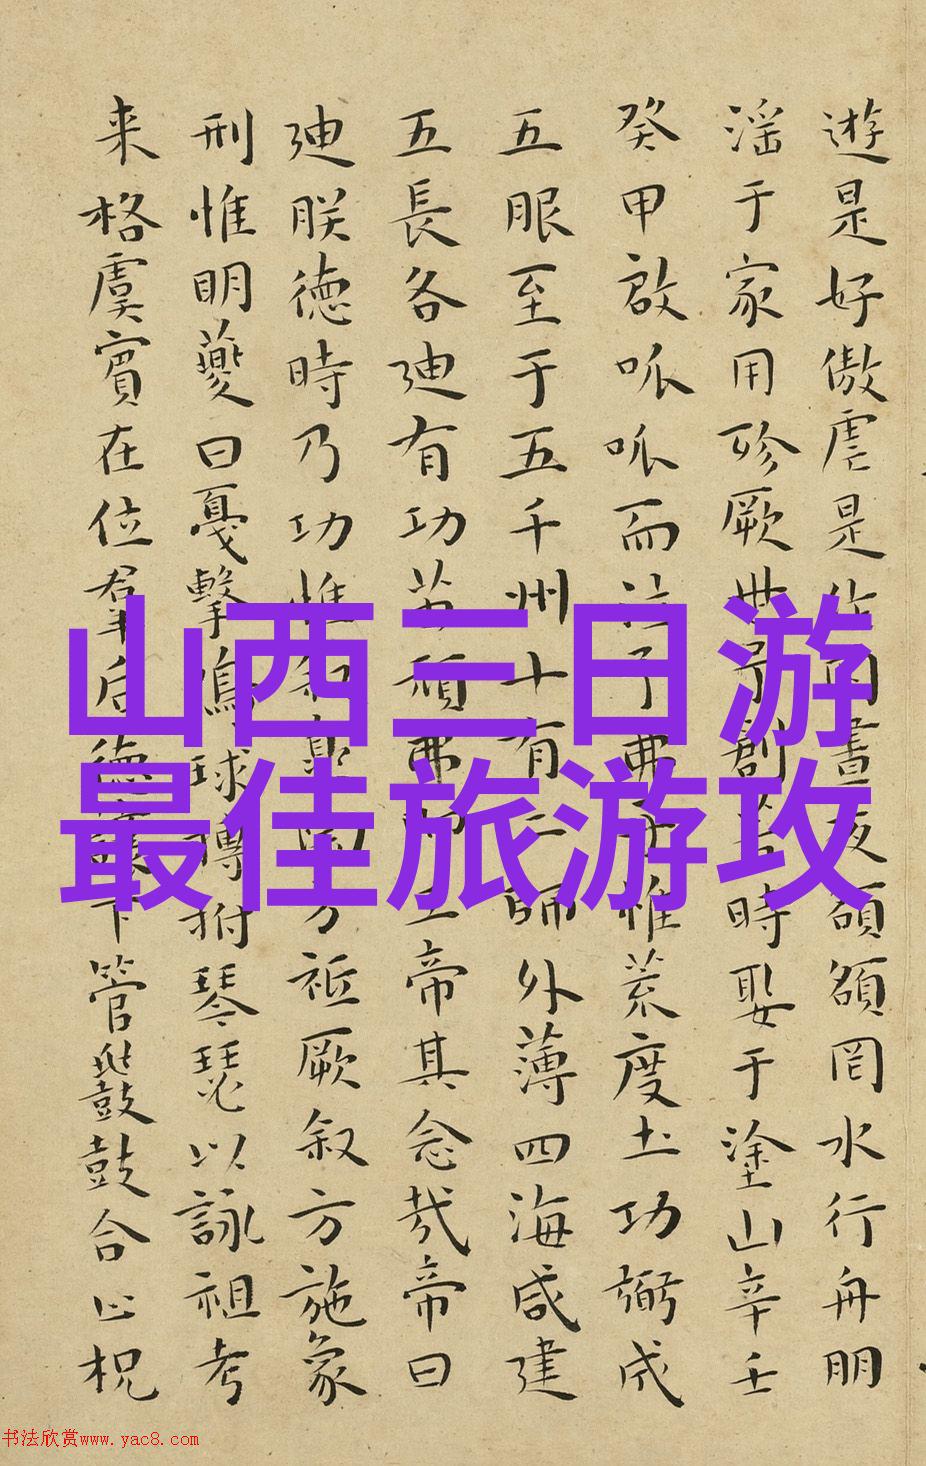 遊是好傲虐是作罔晝夜頟頟罔水行舟朋
滛于家用殄厥世予創若時娶于塗山辛壬
癸甲啟呱呱而泣予弗子惟荒度土功弼成
五服至于五千州十有二師外薄四海咸建
五長各迪有功苗頑弗即工帝其念㢤帝曰
迪朕德時乃功惟叙臯陶方祗厥叙方施象
刑惟明夔曰戛擊鳴球搏拊琴瑟以詠祖考
来格虞賓在位羣后德讓下管鼗鼓合止柷
山西三日游
最佳旅游攻
书法欣赏www.yac8.com